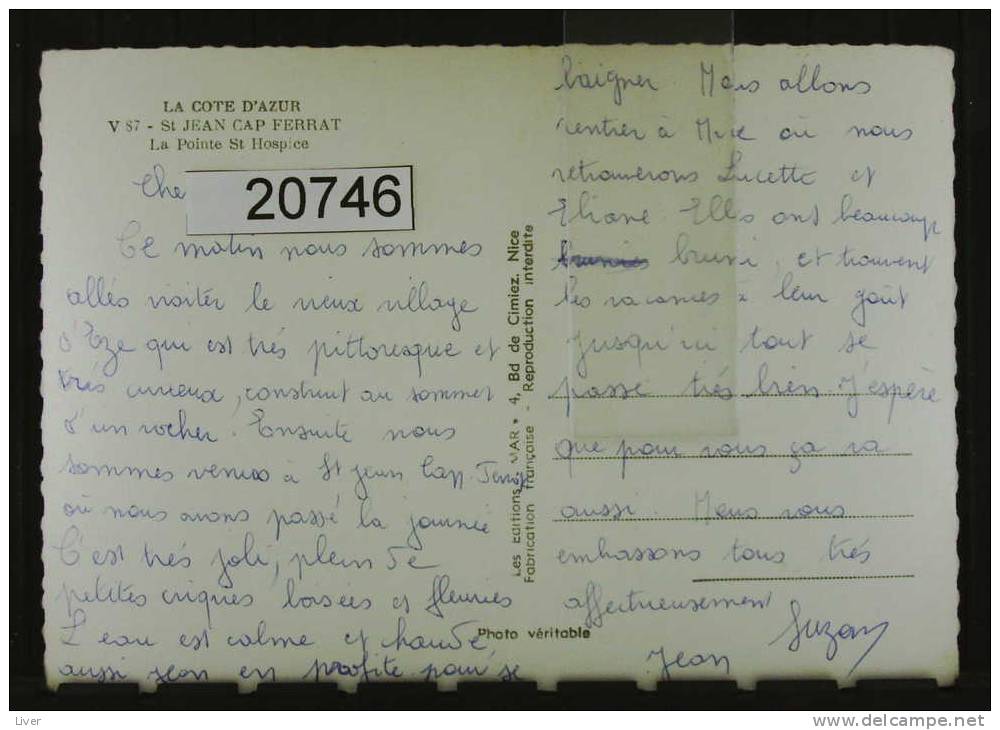 LA COTE D'AZUR
V 87 - St JEAN CAP FERRAT
La Pointe St Hospice
20746
Che
Ce matin nous sommes
allés visiter le vieux village
d'Eze qui est très pittoresque et
très curieux, construit au sommet
d'un rocher. Ensuite nous
sommes venus à St Jean Cap Ferrat
où nous avons passé la journée
C'est très joli, plein de
petites criques boisées et fleuries
L'eau est calme et chaude,
aussi Jean en profite pour se
baigner. Nous allons
rentrer à Nice où nous
retrouverons Lucette et
Eliane Elles ont beaucoup
bruni, et trouvent
les vacances à leur goût
Jusqu'ici tout se
passe très bien J'espère
que pour vous ça va
aussi. Nous vous
embrassons tous très
affectueusement
Suzon
Jean
Les Editions MAR • 4, Bd de Cimiez. Nice
Fabrication française - Reproduction interdite
Photo véritable
Liver
www.delcampe.net